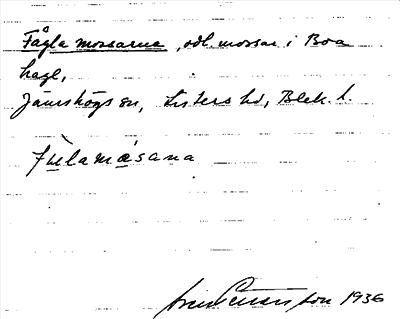 Fågla mossarna, odl. mossar i Boa
hage,
Jämshögs sn, Listers hd, Blek. l.
fulamåsana
1936